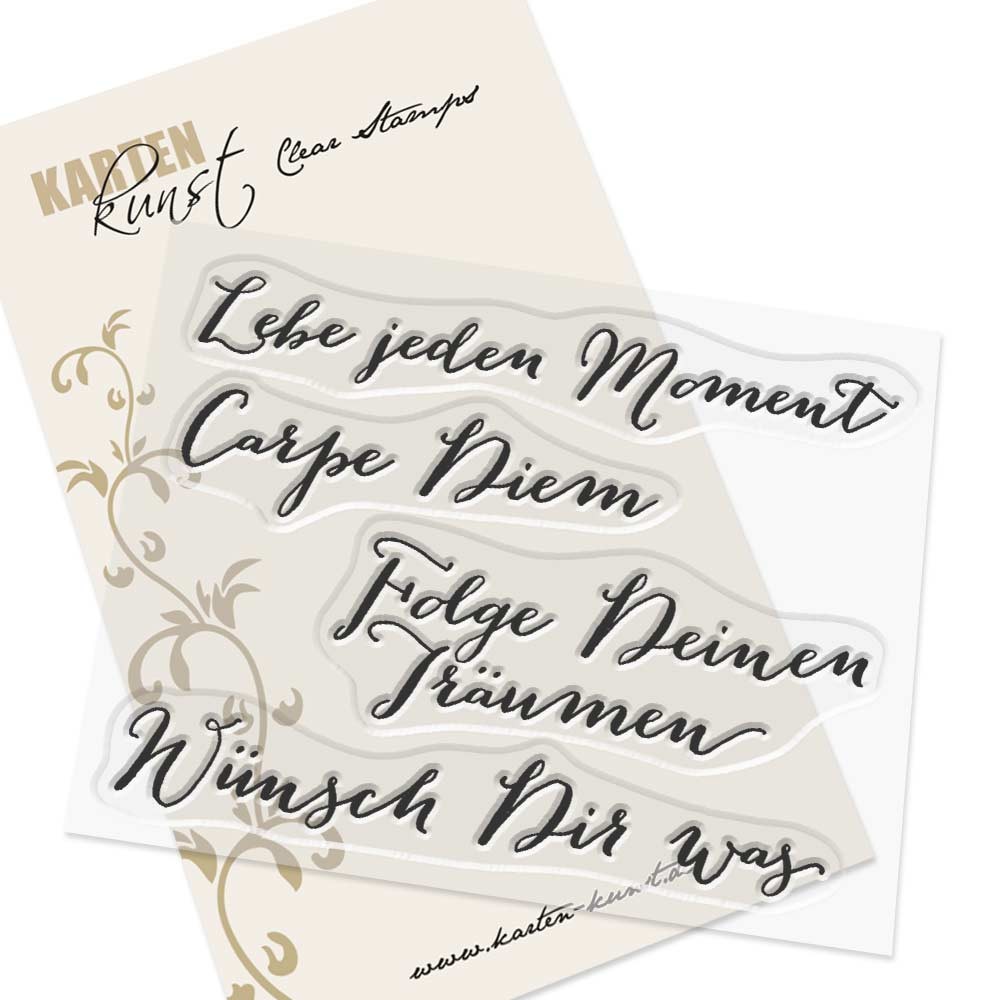 KARTEN
kunst Clear Stamps
Lebe jeden Moment
Carpe Diem
Folge Deinen
Träumen
Wünsch Dir was